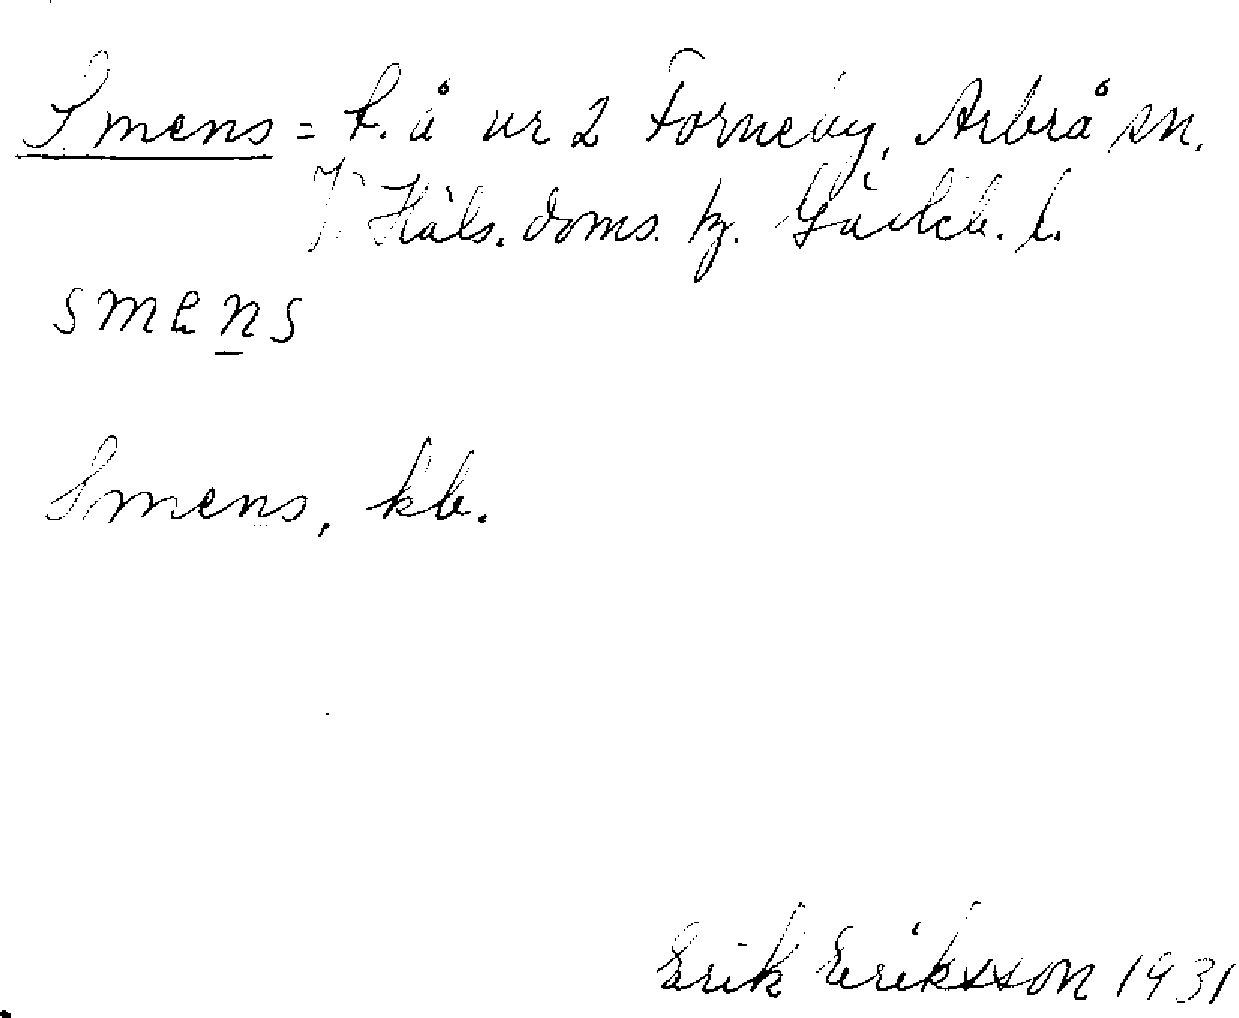 Smens = t. å nr 2 Forneby, Arbrå sn.
V. Häls. doms. hz. Gävleb. l.
smens
Smens, kb.
Erik Eriksson 1931